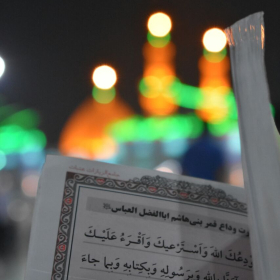 رت وداع قمر بنی هاشم اباالفضل العباس
وْدِعُكَ اللهَ وَأَسْتَرْعیكَ وَأَقْرَءُ عَلَیْكَ
بِاللهِ وَبِرَسُولِهِ وَبِكِتابِهِ وَبِما جاءَ